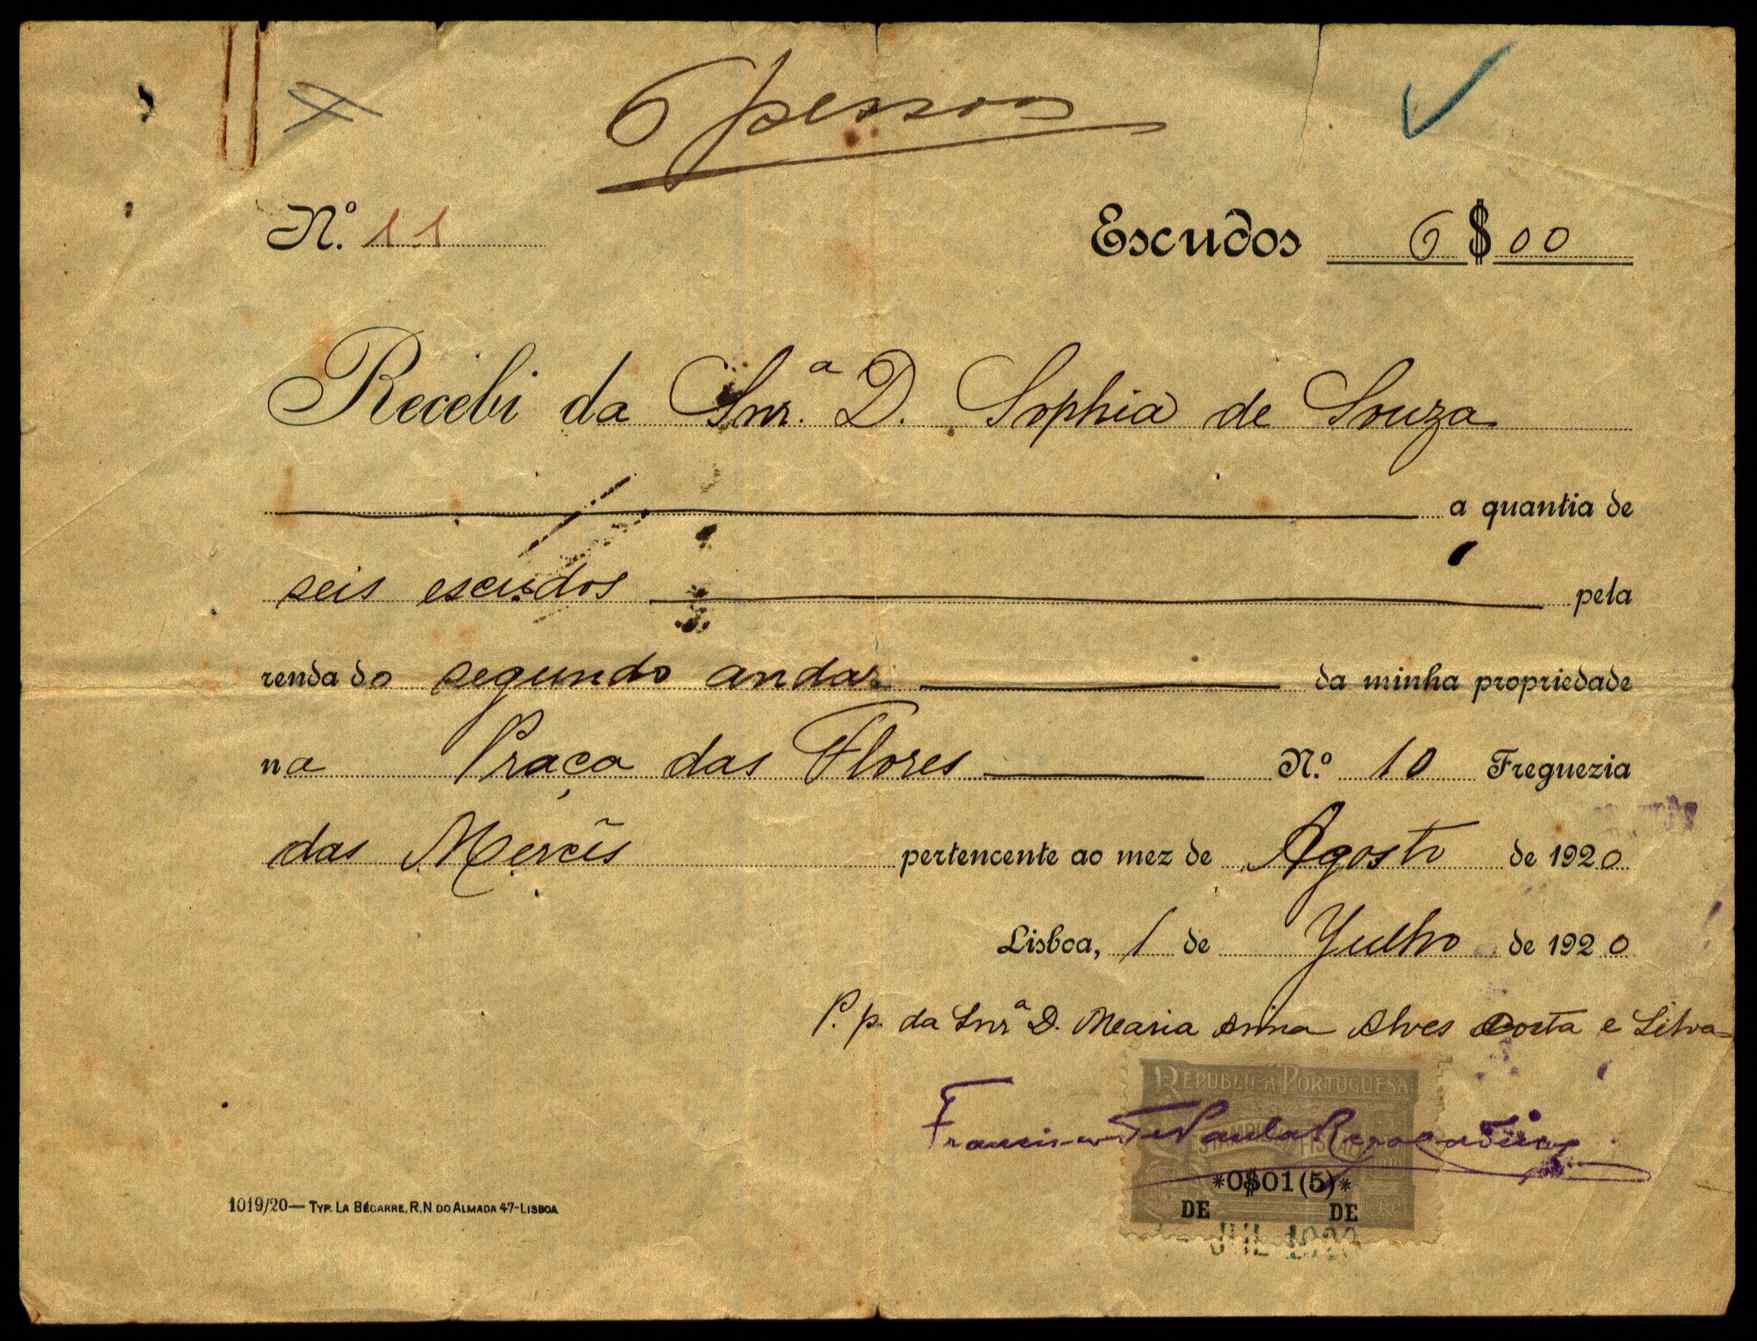 6 pessoas
N.º 11 Escudos 6$00
Recebi da Snr.ª D. Sophia de Souza
a quantia de
seis escudos pela
renda do segundo andar da minha propriedade
na Praça das Flores N.º 10 Freguezia
das Mercês pertencente ao mez de Agosto de 1920
Lisboa, 1 de Julho de 1920
P. p. da Snrª D. Maria Anna Alves Costa e Silva
REPUBLICA PORTUGUESA
Francisco de Paula
*0$01(5)*
DE DE
JUL 1920
1019/20—TYP. LA BÉCARRE, R. N DO ALMADA 47-LISBOA